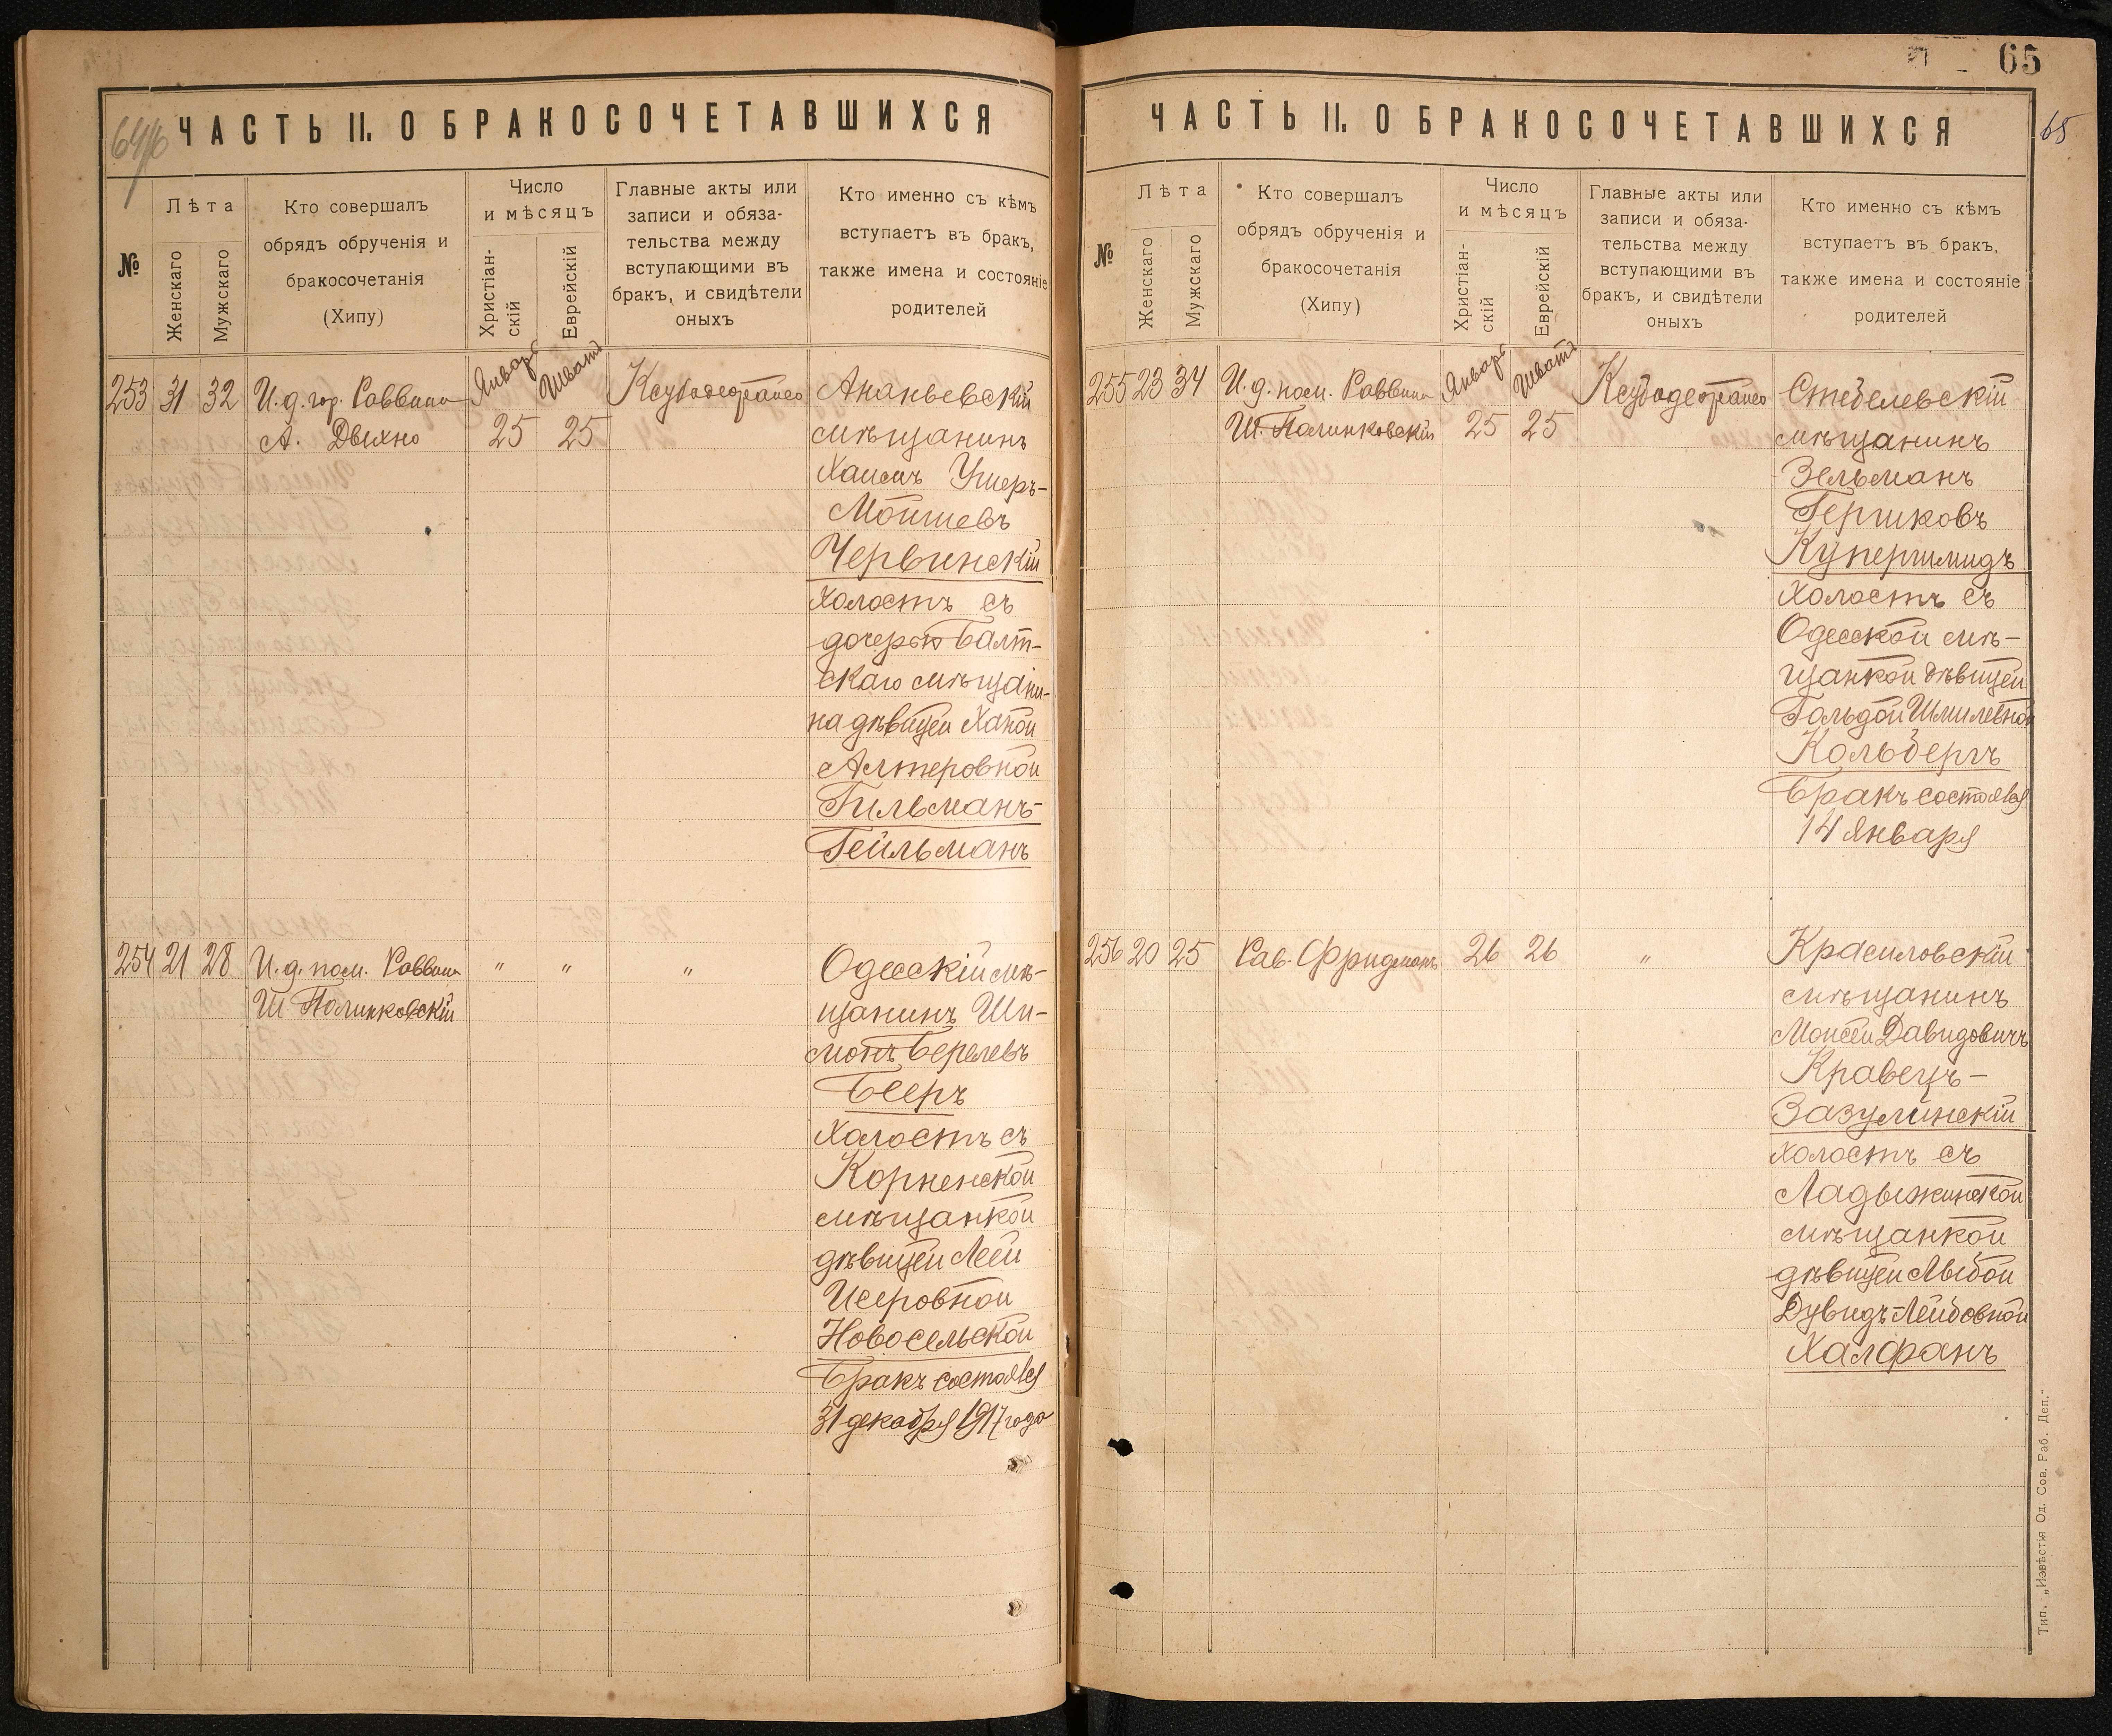 64/б
ЧАСТЬ II. О БРАКОСОЧЕТАВШИХСЯ
№
Лѣта
Женскаго
Мужскаго
Кто совершалъ
обрядъ обрученія и
бракосочетанія
(Хипу)
Число
и мѣсяцъ
Христіан-
скій
Еврейскій
Главные акты или
записи и обяза-
тельства между
вступающими въ
бракъ, и свидѣтели
оныхъ
Кто именно съ кѣмъ
вступаетъ въ бракъ,
также имена и состояніе
родителей
253 31 32 И.д. гор. Раввина Январь Шватъ Ананьевскій
А. Двихно 25 25 мѣщанинъ
Хаимъ Ушеръ-
Мойшевъ
Червинскій
холостъ съ
дочерью Балт-
скаго мѣщани-
на дѣвицей Ханой
Алтеровной
Гильманъ-
Гейльманъ
254 21 28 И.д. пом. Раввина " " " Одесскій мѣ-
Ш. Полинковскій щанинъ Ши-
монъ Берелевъ
Бееръ
холостъ съ
Корненской
мѣщанкой
дѣвицей Леей
Исеровной
Новосельской
Бракъ состоялся
31 декабря 1917 года
65
65
ЧАСТЬ II. О БРАКОСОЧЕТАВШИХСЯ
№
Лѣта
Женскаго
Мужскаго
Кто совершалъ
обрядъ обрученія и
бракосочетанія
(Хипу)
Число
и мѣсяцъ
Христіан-
скій
Еврейскій
Главные акты или
записи и обяза-
тельства между
вступающими въ
бракъ, и свидѣтели
оныхъ
Кто именно съ кѣмъ
вступаетъ въ бракъ,
также имена и состояніе
родителей
255 23 34 И.д. пом. Раввина Январь Шватъ Стебелевскій
Ш. Полинковскій 25 25 мѣщанинъ
Зельманъ
Гершковъ
Купершмидъ
холостъ съ
Одесской мѣ-
щанкой дѣвицей
Гольдой Шмилевной
Кольбергъ
Бракъ состоялся
14 Января
256 20 25 Рав. Фридманъ 26 26 " Красиловскій
мѣщанинъ
Моисей Давидовичъ
Кравецъ-
Зазулинскій
холостъ съ
Ладыжинской
мѣщанкой
дѣвицей Лыбой
Дувидъ-Лейбовной
Халфанъ
Тип. „Извѣстія Од. Сов. Раб. Деп."